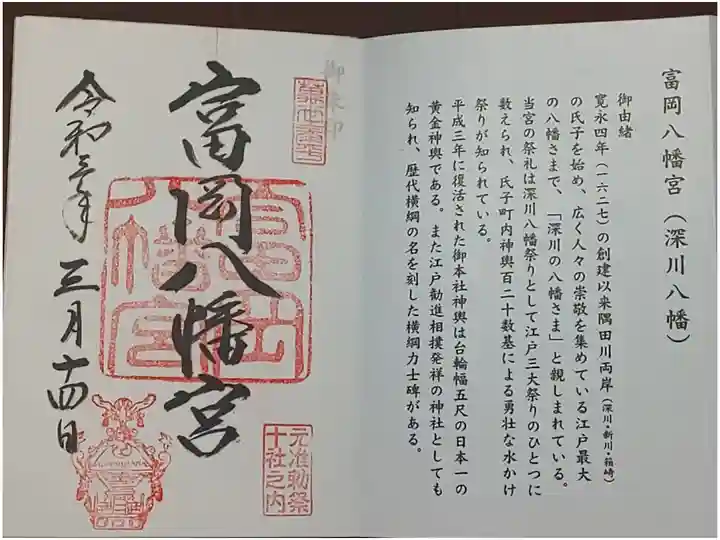 富岡八幡宮(深川八幡)
御由緒
寛永四年(一六二七)の創建以来隅田川両岸(深川・新川・箱崎)
の氏子を始め、広く人々の崇敬を集めている江戸最大
の八幡さまで、「深川の八幡さま」と親しまれている。
当宮の祭礼は深川八幡祭りとして江戸三大祭りのひとつに
数えられ、氏子町内神輿百二十数基による勇壮な水かけ
祭りが知られている。
平成三年に復活された御本社神輿は台輪幅五尺の日本一の
黄金神輿である。また江戸勧進相撲発祥の神社としても
知られ、歴代横綱の名を刻した横綱力士碑がある。
御朱印
富岡八幡宮
富岡八幡宮
元准勅祭
十社之内
令和三年三月十四日